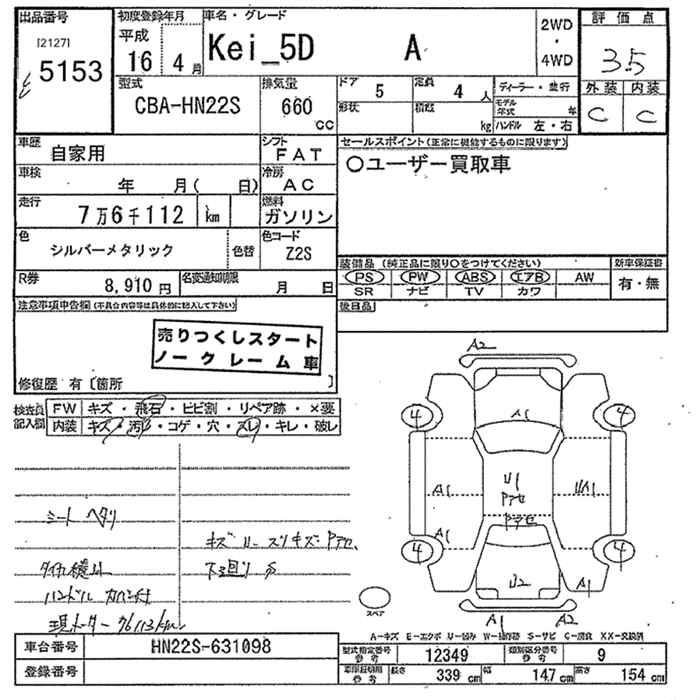 出品番号
[2127]
5153
初度登録年月
平成
16 4月
車名・グレード
Kei_5D A
2WD
・
4WD
評価点
3.5
外装 内装
C C
型式
CBA-HN22S
排気量
660
cc
ドア
5
定員
4人
形状
積載
kg
ディーラー・並行
モデル年式 年
ハンドル 左・右
車歴
自家用
シフト
FAT
車検
年 月( 日)
冷房
AC
走行
7万6千112 km
燃料
ガソリン
色
シルバーメタリック
色替
色コード
Z2S
R券
8,910円
名変通知期限
月 日
セールスポイント(正常に機能するものに限ります)
○ユーザー買取車
装備品(純正品に限り○をつけてください)
PS PW ABS エアB AW
SR ナビ TV カワ
新車保証書
有・無
後日品
注意事項申告欄(不具合内容等は具体的に記入して下さい)
売りつくしスタート
ノークレーム車
修復歴 有〔箇所 〕
検査員記入欄
FW キズ・飛石・ヒビ割・リペア跡・×要
内装 キズ・汚れ・コゲ・穴・スレ・キレ・破レ
シート ヘタリ
キズ U スリキズ アセ
下廻り サ
ハンドル カバー付
現メーター 76113km
A2
A1
4 4
U1
アセ
A1 UA1
アセ
A1
4 4
U2
A1
A1 A2
スペア
A-キズ E-エクボ U-凹み W-補修跡 S-サビ C-腐食 XX-交換済
車台番号
HN22S-631098
登録番号
型式指定番号
参考
12349
類別区分番号
参考
9
車両諸明細
参考
長さ
339cm
幅
147cm
高さ
154cm